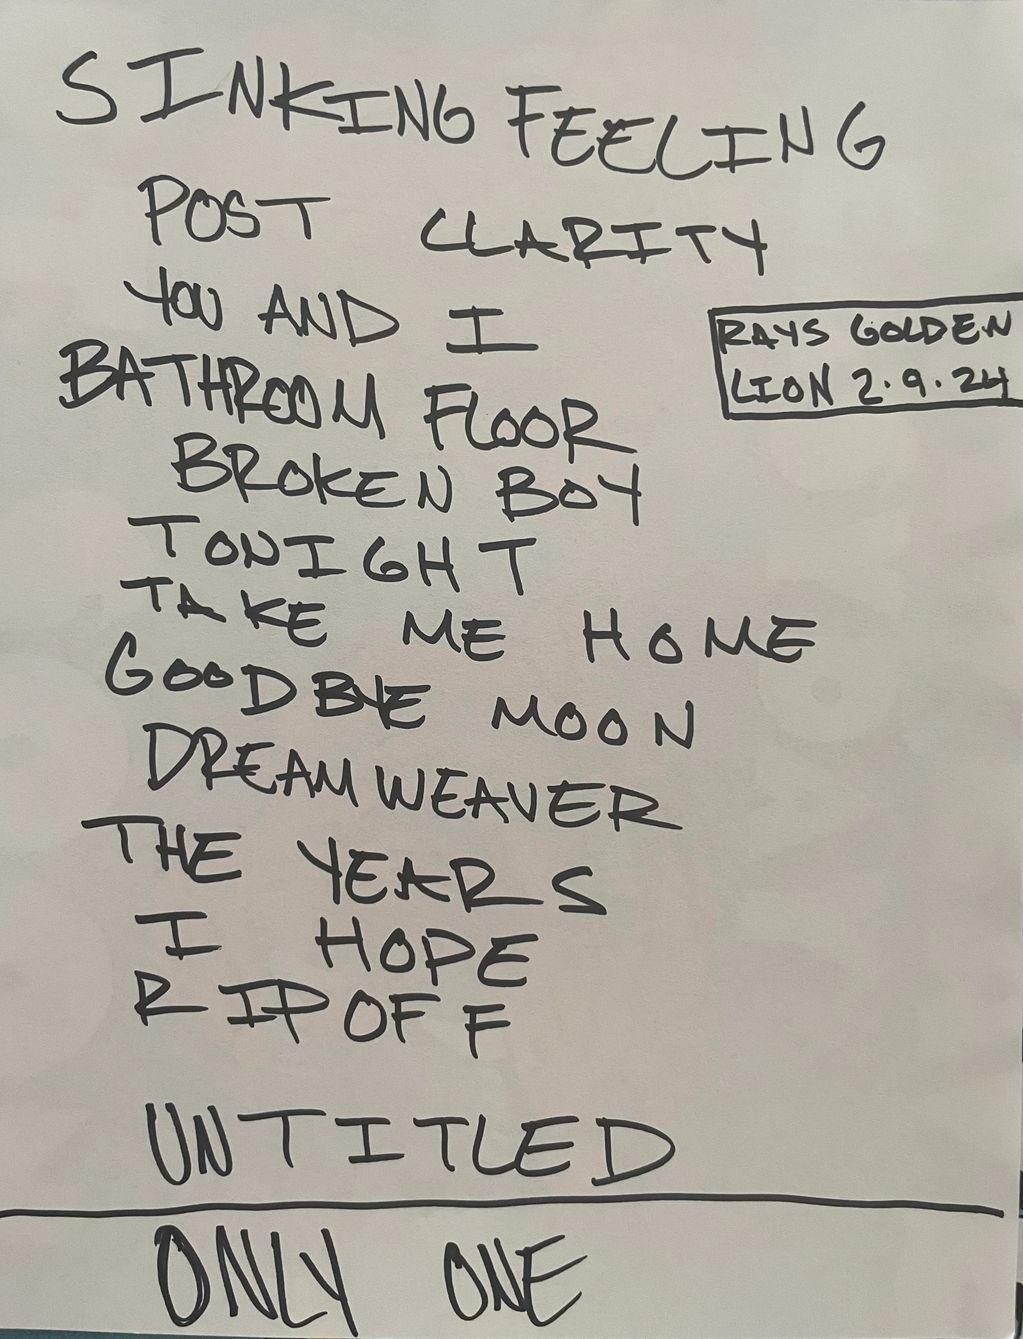 SINKING FEELING
POST CLARITY
YOU AND I
RAYS GOLDEN
LION 2.9.24
BATHROOM FLOOR
BROKEN BOY
TONIGHT
TAKE ME HOME
GOODBYE MOON
DREAMWEAVER
THE YEARS
I HOPE
RIPOFF
UNTITLED
ONLY ONE